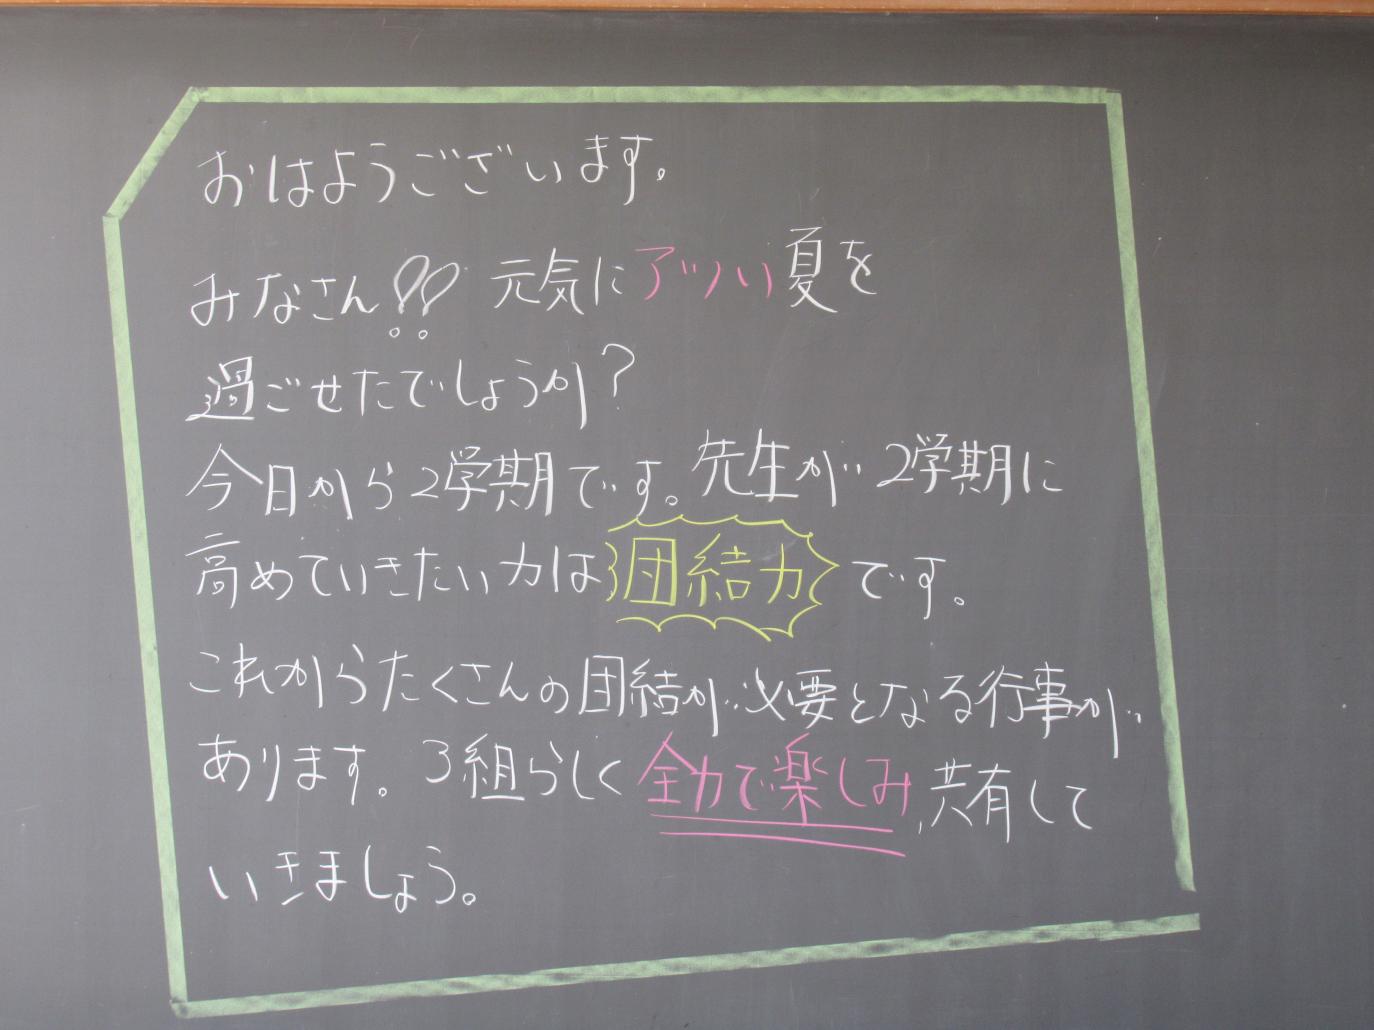 おはようございます。
みなさん!! 元気にアツい夏を
過ごせたでしょうか?
今日から2学期です。先生が2学期に
高めていきたい力は団結力です。
これからたくさんの団結が必要となる行事が
あります。3組らしく全力で楽しみ,共有して
いきましょう。